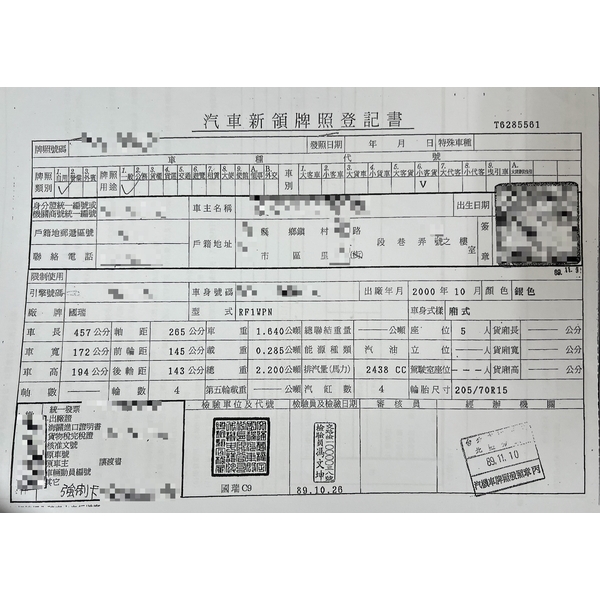 汽車新領牌照登記書
T6285561
牌照號碼 發照日期 年 月 日 特殊車種
車 種 代 號
牌照類別 1.自用 2.營業 3.外賓 牌照用途 車別 1.大客車 2.小客車 3.大貨車 4.小貨車 7.大代客 8.小代客 9.曳引車
身分證統一編號或 車主名稱 出生日期
戶籍地郵遞區號 戶籍地址 縣 鄉鎮 村 路 段 巷 弄 號之 樓 室 簽章
聯絡電話 市 區 里
限制使用
引擎號碼 車身號碼 出廠年月 2000 年 10 月 顏色 銀色
廠牌 國瑞 型式 RF1WPN 車身式樣 廂式
車長 457 公分 軸距 265 公分 車重 1.640 公噸 總聯結重量 公噸 座位 5 人 貨廂長 公分
車寬 172 公分 前輪距 145 公分 載重 0.285 公噸 能源種類 汽油 立位 人 貨廂寬 公分
車高 194 公分 後輪距 143 公分 總重 2.200 公噸 排汽量(馬力) 2438 CC 駕駛室座位 人 貨廂高 公分
軸數 輪數 4 第五輪載重 公噸 汽缸數 4 輪胎尺寸 205/70R15
檢驗單位及代號 檢驗員及檢驗日期 審核員 經辦機關
統一發票
出廠證
海關進口證明書
貨物稅完稅證
核准文號
原車號
原車主 讓渡書
車輛動員編號
其它
強制卡
國瑞 C9
檢驗員馮文坤
89.10.26
89.11.10